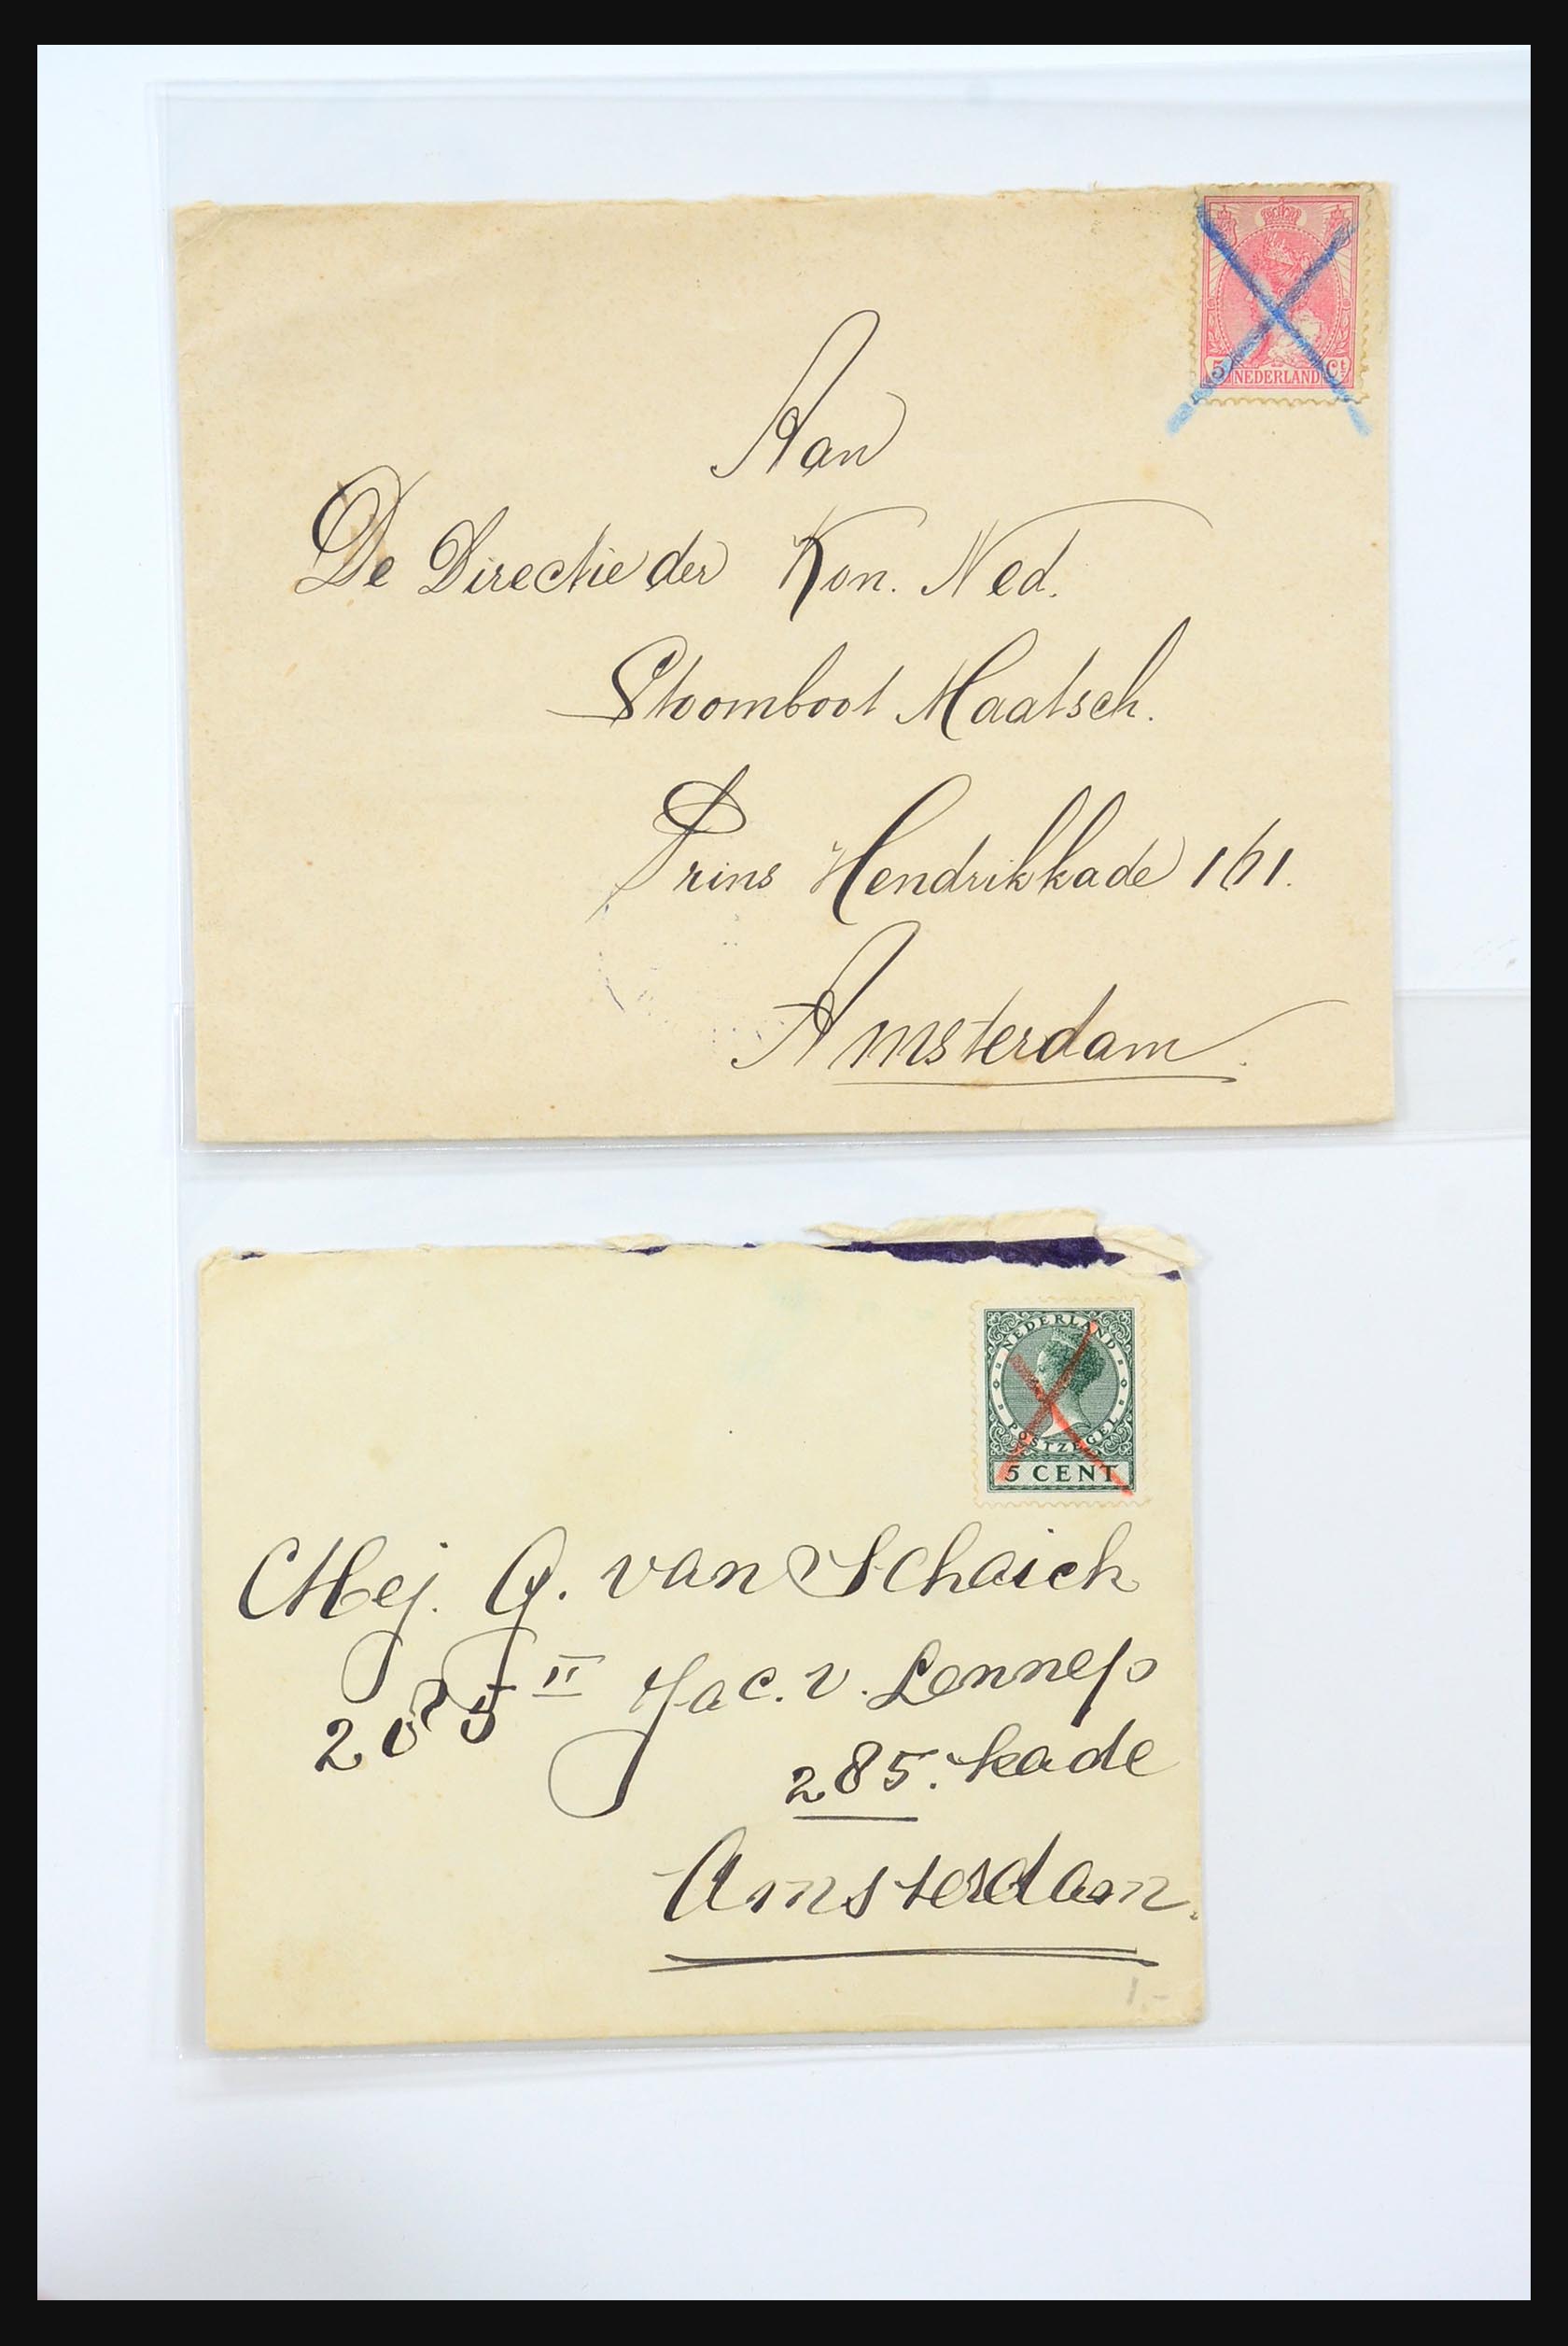 5 NEDERLAND Ct
Aan
De Directie der Kon. Ned.
Stoomboot Maatsch.
Prins Hendrikkade 161.
Amsterdam.
NEDERLAND
POSTZEGEL
5 CENT
Mej. G. van Schaick
285 II Jac. v. Lennep
285. kade
Amsterdam.
1.-